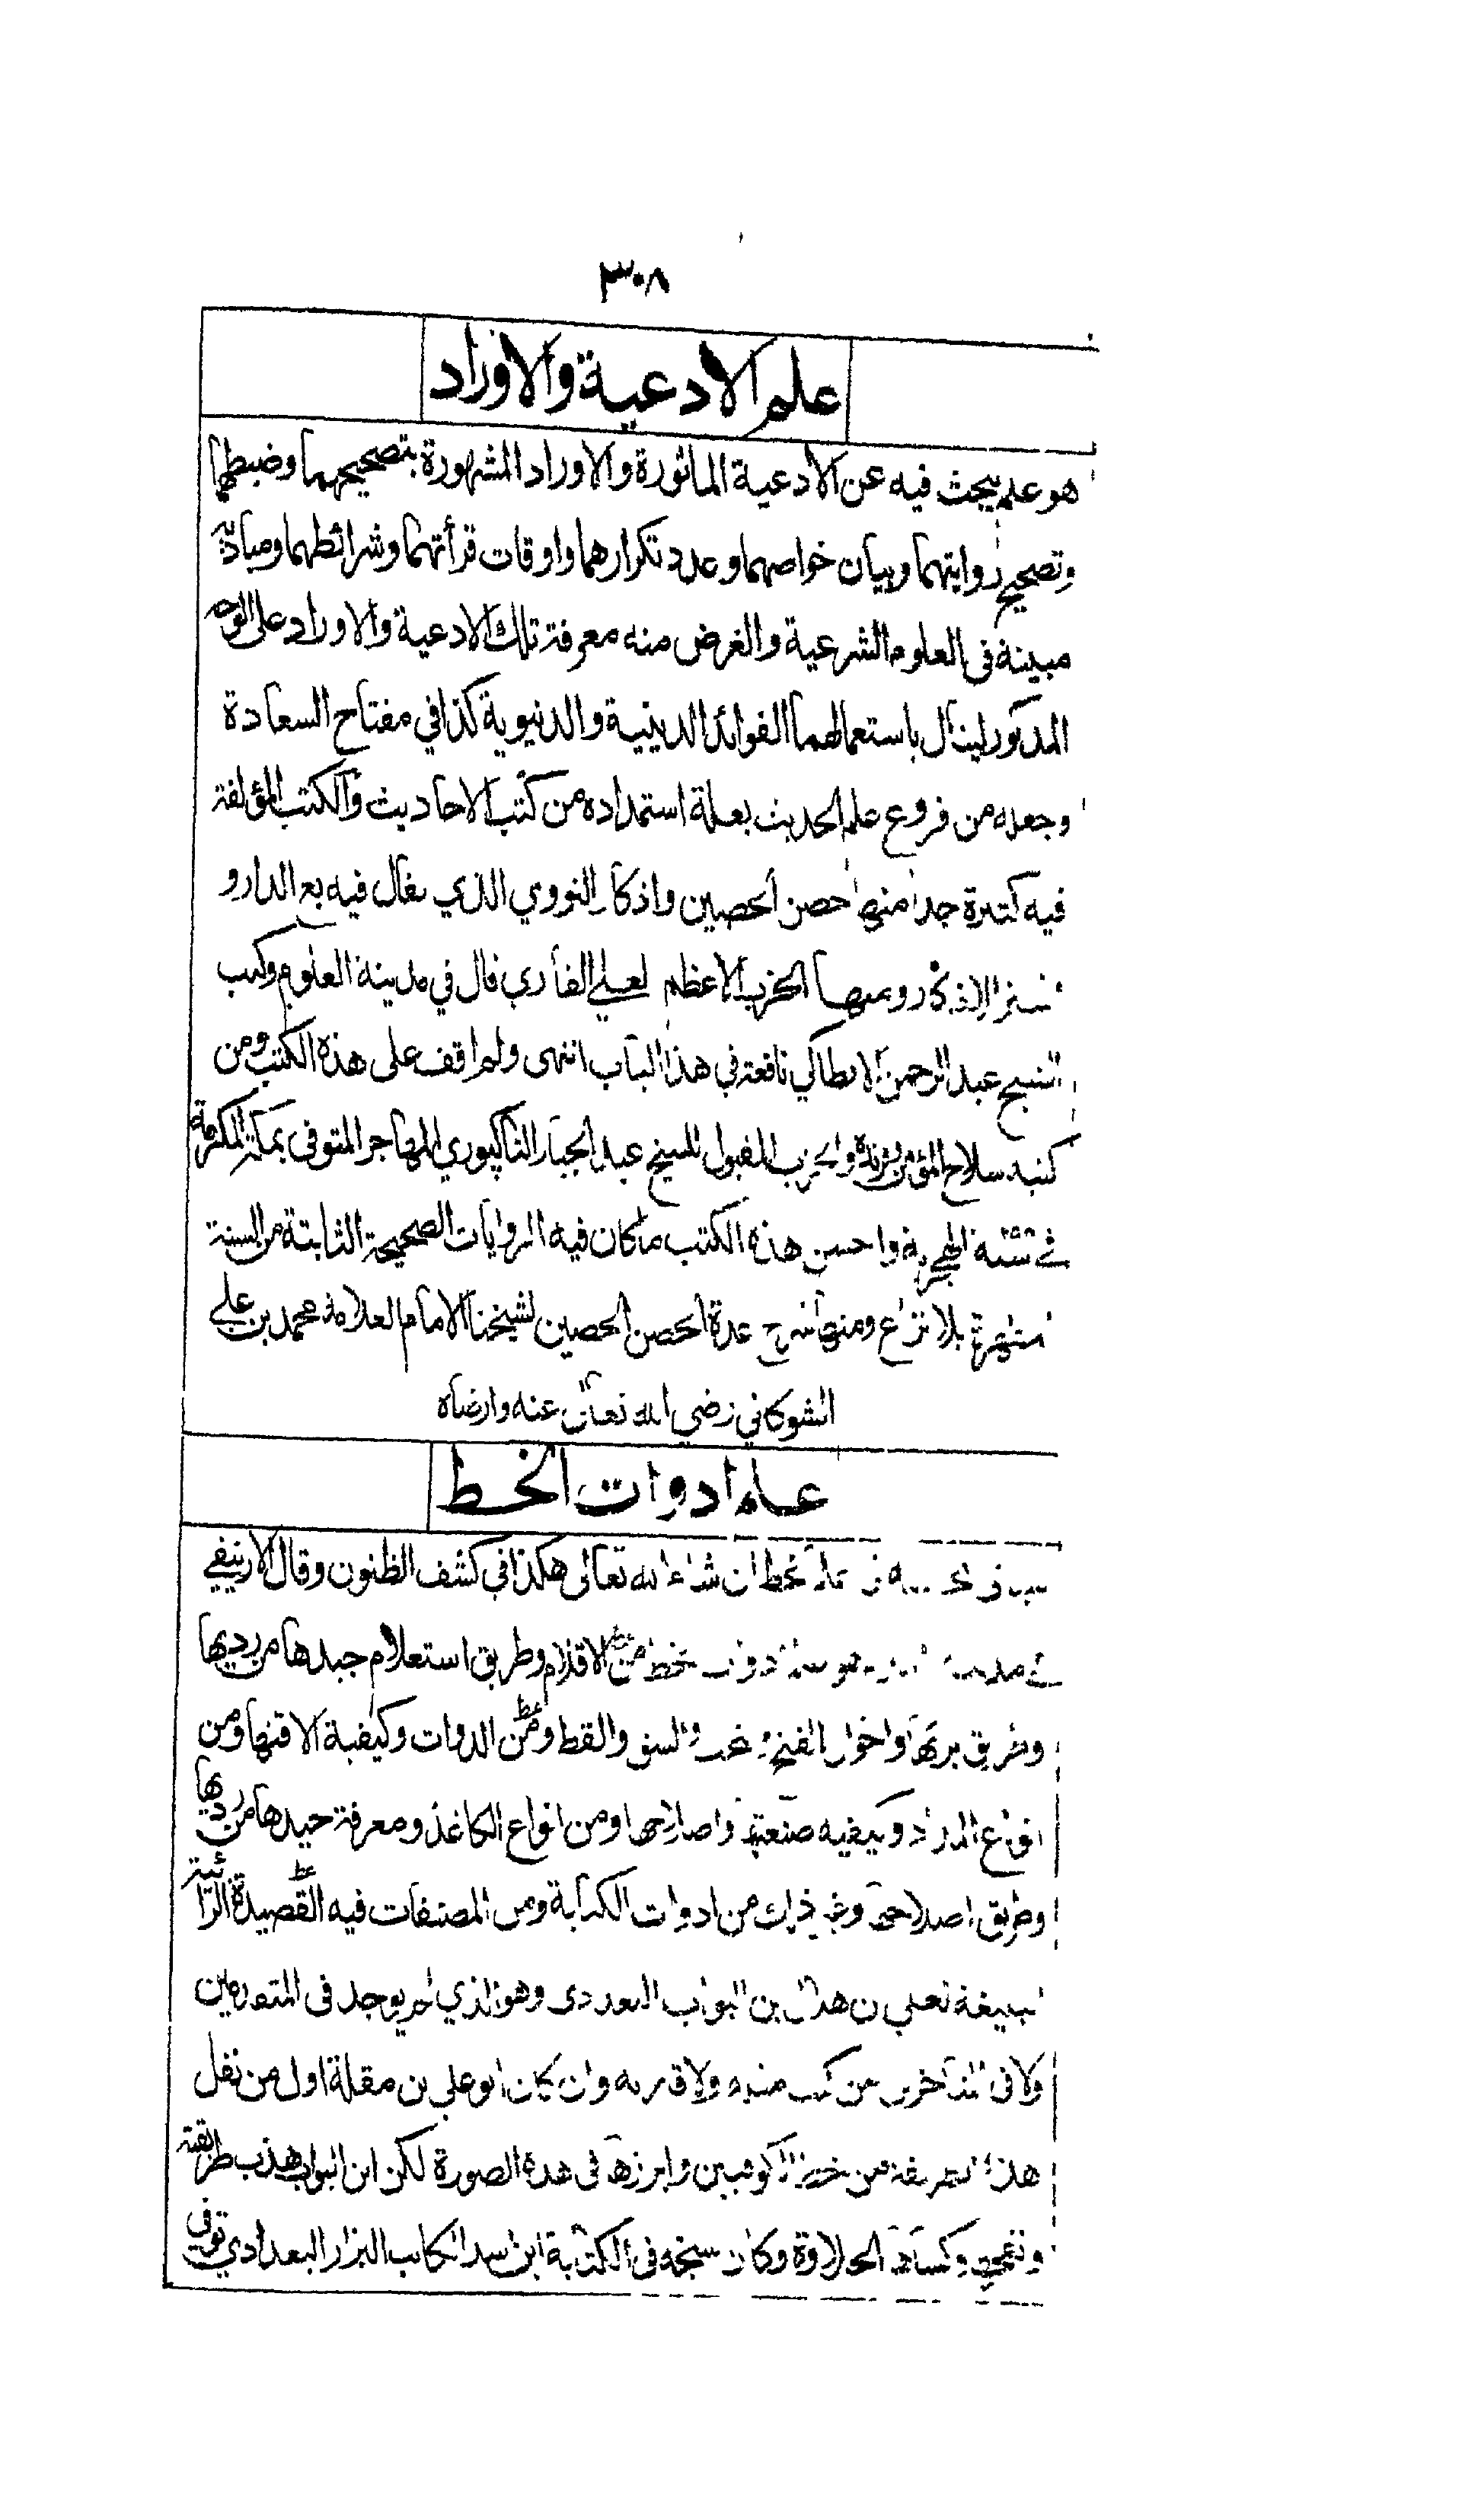 ٣٠٨
علم الادعية والاوراد
هو علم يبحث فيه عن الادعية الماثورة والاوراد المشهورة بتصحيحهما وضبطهما
وتصحيح روايتهما وبيان خواصهما وعدد تكرارهما واوقات قرأتهما وشرائطهما ومباديه
مبينة في العلوم الشرعية والغرض منه معرفة تلك الادعية والاوراد على الوجه
المذكور لينال باستعمالهما الفوائد الدينية والدنيوية كذا في مفتاح السعادة
وجعله من فروع علم الحديث بعلة استمداده من كتب الاحاديث والكتب المؤلفة
فيه كثيرة جدا منها حصن الحصين واذكار النووي الذي يقال فيه بع الدار و
الاذكار ومنها الحزب الاعظم لعلي القاري قال في مدينة العلوم وكتب
الشيخ عبد الرحمن الانطاكي نافعة في هذا الباب انتهى ولم اقف على هذه الكتب ومن
كتبه سلاح المؤمن والحزب المقبول للشيخ عبد الجبار الناكپوري المهاجر المتوفى بمكة المكرمة
الهجرية واحسن هذه الكتب ما كان فيه الروايات الصحيحة الثابتة من السنة
المطهرة بلا نزاع ومنها شرح عدة الحصن الحصين لشيخنا الامام العلامة محمد بن علي
الشوكاني رضي الله تعالى عنه وارضاه
علم ادوات الخط
علم الخط ان شاء الله تعالى هكذا في كشف الظنون وقال الارنيقي
في مدينة من الاقلام وطريق استعلام جيدها من رديها
وطريق بريها واحوال الفتح والشق والقط ومن الدوات وكيفية الاقتها ومن
انواع المداد وكيفية صنعتها واصلاحها ومن انواع الكاغذ ومعرفة جيدها من رديها
وطريق اصلاحها وغير ذلك من ادوات الكتابة ومن المصنفات فيه القصيدة الرائية
البليغة لعلي بن هلال بن البواب البغدادي وهو الذي لم يوجد في المتقدمين
ولا في المتأخرين من كتب مثله ولا قاربه وان كان ابو علي بن مقلة اول من نقل
هذه الطريقة من خط الكوفيين وابرزها في هذه الصورة لكن ابن البواب هذب طريقته
ونقحها وكساها الحلاوة وكان شيخه في الكتابة ابن اسد الكاتب البزار البغدادي توفي